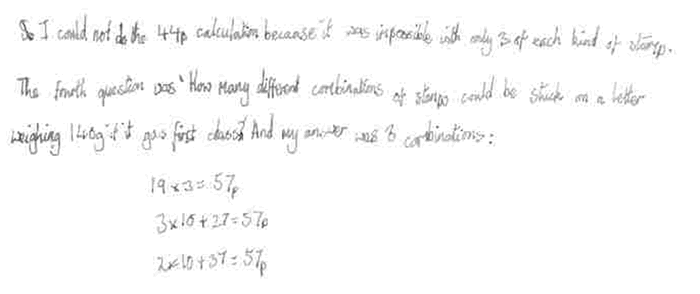 So I could not do the 44p calculation because it was impossible with only 3 of each kind of stamp.
The fourth question was 'How Many different combinations of stamps could be stuck on a letter
weighing 140g if it goes first class? And my answer was 3 combinations:
19 x 3 = 57p
3 x 10 + 27 = 57p
2 x 10 + 37 = 57p